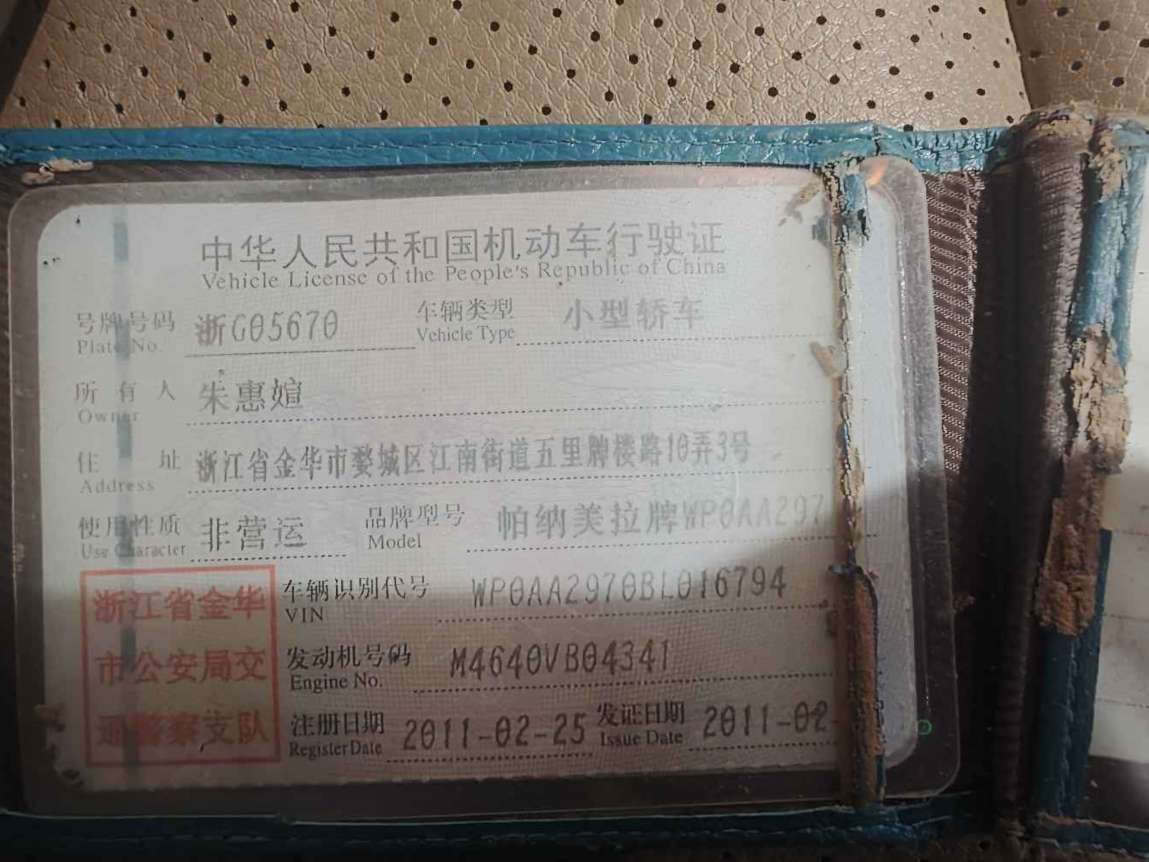 中华人民共和国机动车行驶证
Vehicle License of the People's Republic of China
号牌号码 浙G05670 车辆类型 小型轿车
Plate No. Vehicle Type
所有人 朱惠媗
Owner
住址 浙江省金华市婺城区江南街道五里牌楼路10弄3号
Address
使用性质 非营运 品牌型号 帕纳美拉牌WP0AA297
Use Character Model
浙江省金华
市公安局交
通警察支队
车辆识别代号 WP0AA2970BL016794
VIN
发动机号码 M4640VB04341
Engine No.
注册日期 2011-02-25 发证日期 2011-02-
Register Date Issue Date